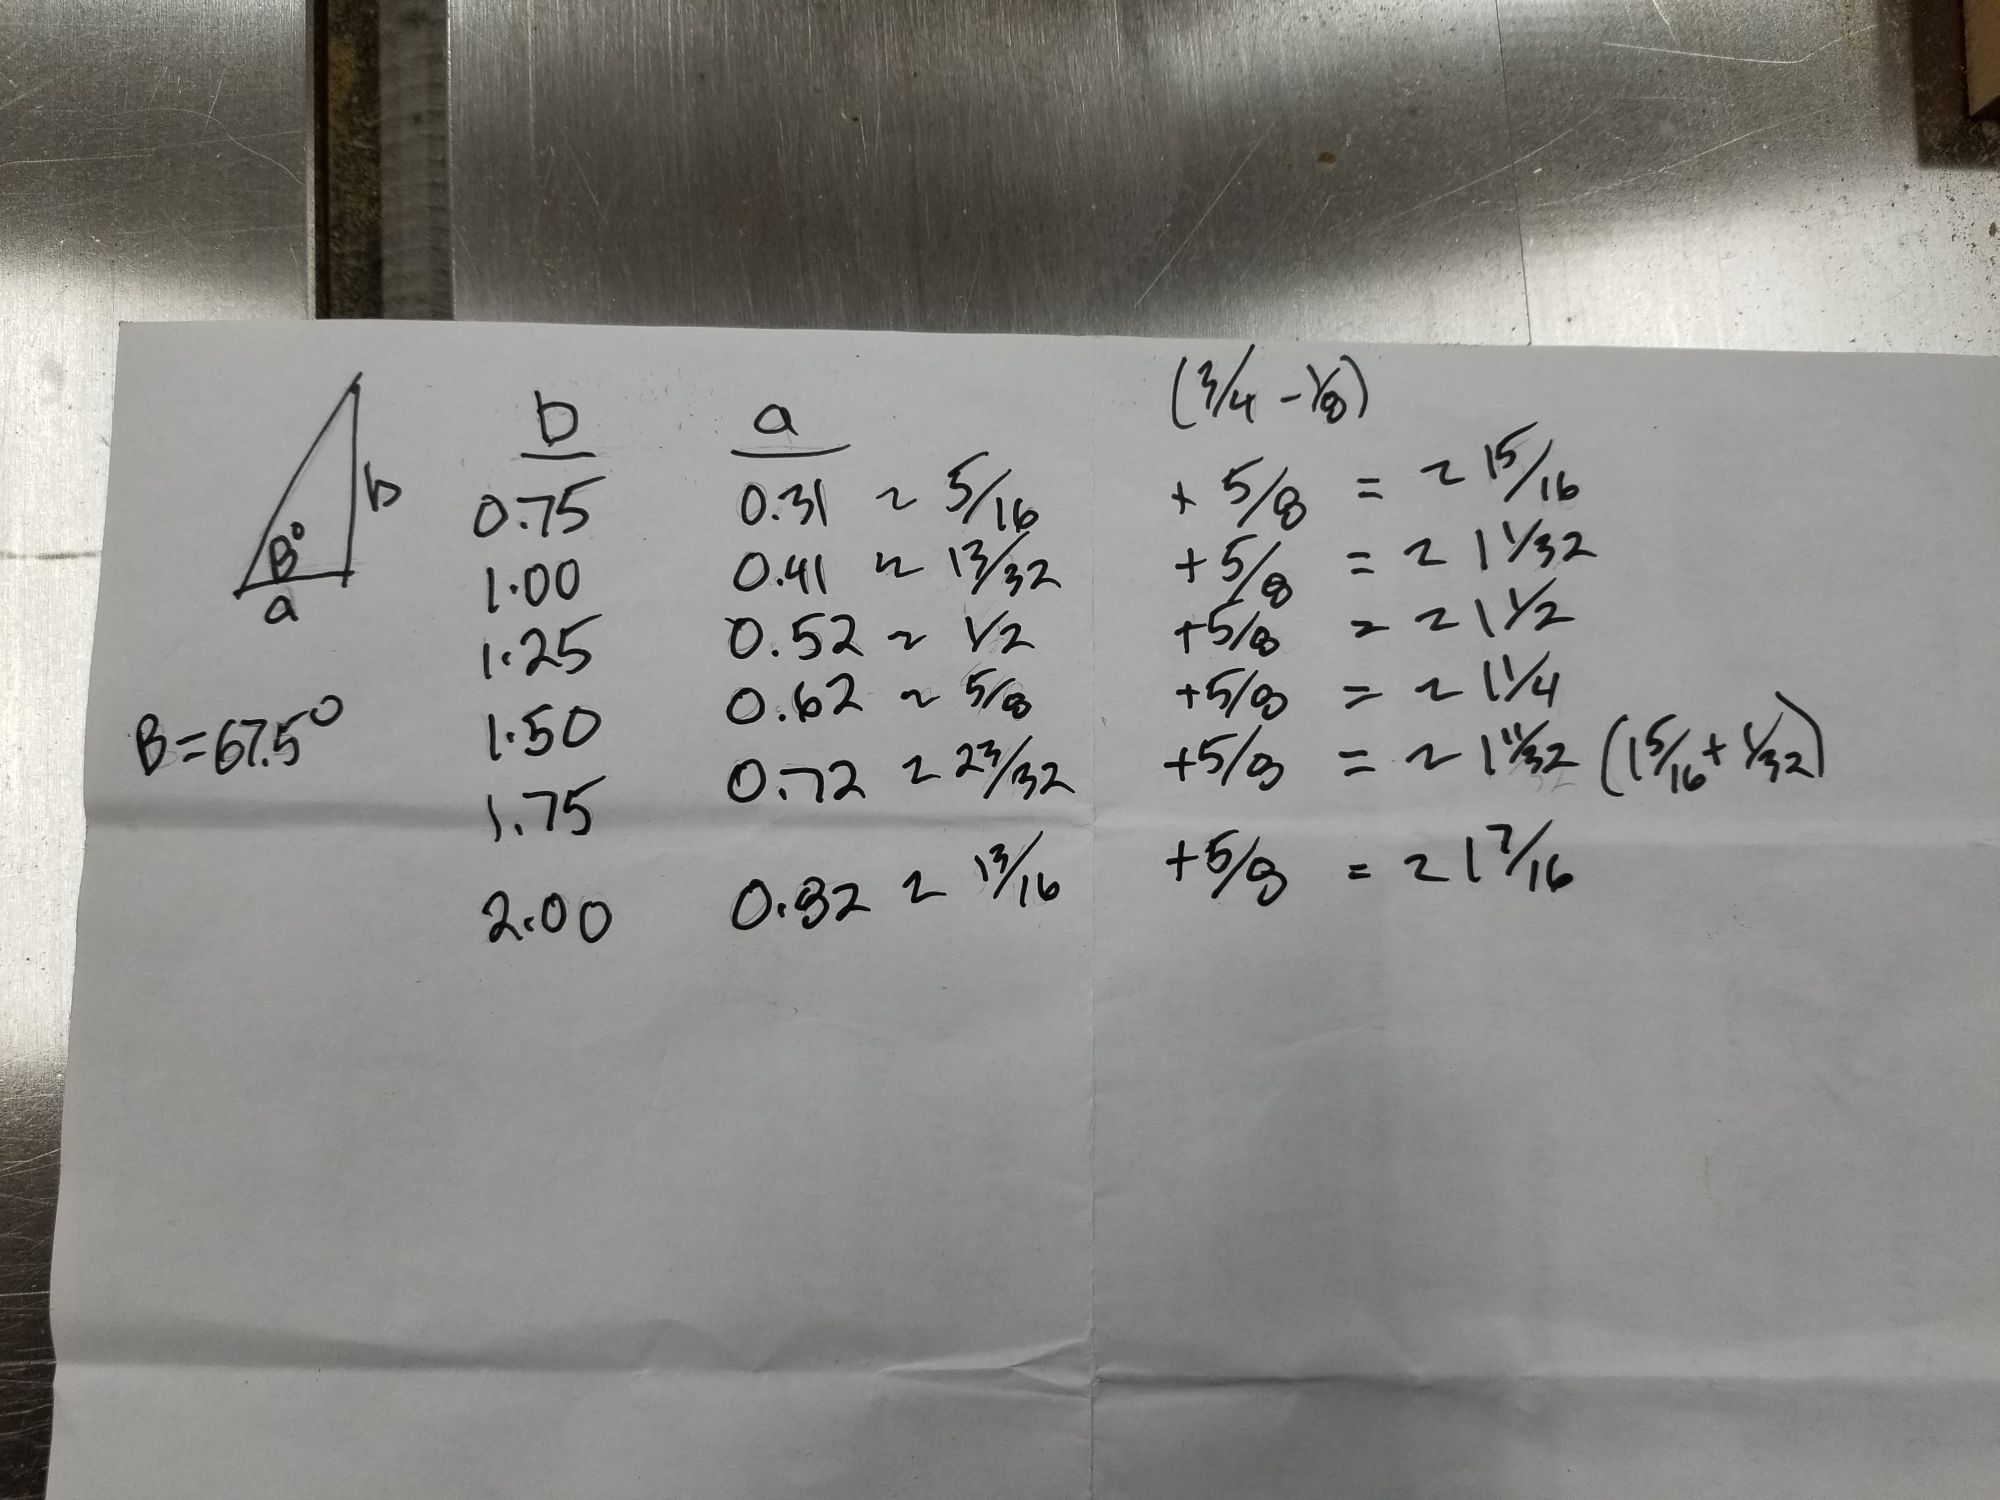 (3/4 - 1/8)
b a
0.75 0.31 ~ 5/16 + 5/8 = ~ 15/16
1.00 0.41 ~ 13/32 + 5/8 = ~ 1 1/32
1.25 0.52 ~ 1/2 + 5/8 = ~ 1 1/2
1.50 0.62 ~ 5/8 + 5/8 = ~ 1 1/4
1.75 0.72 ~ 23/32 + 5/8 = ~ 1 11/32 (1 5/16 + 1/32)
2.00 0.82 ~ 13/16 + 5/8 = ~ 1 7/16
b
B°
a
B = 67.5°